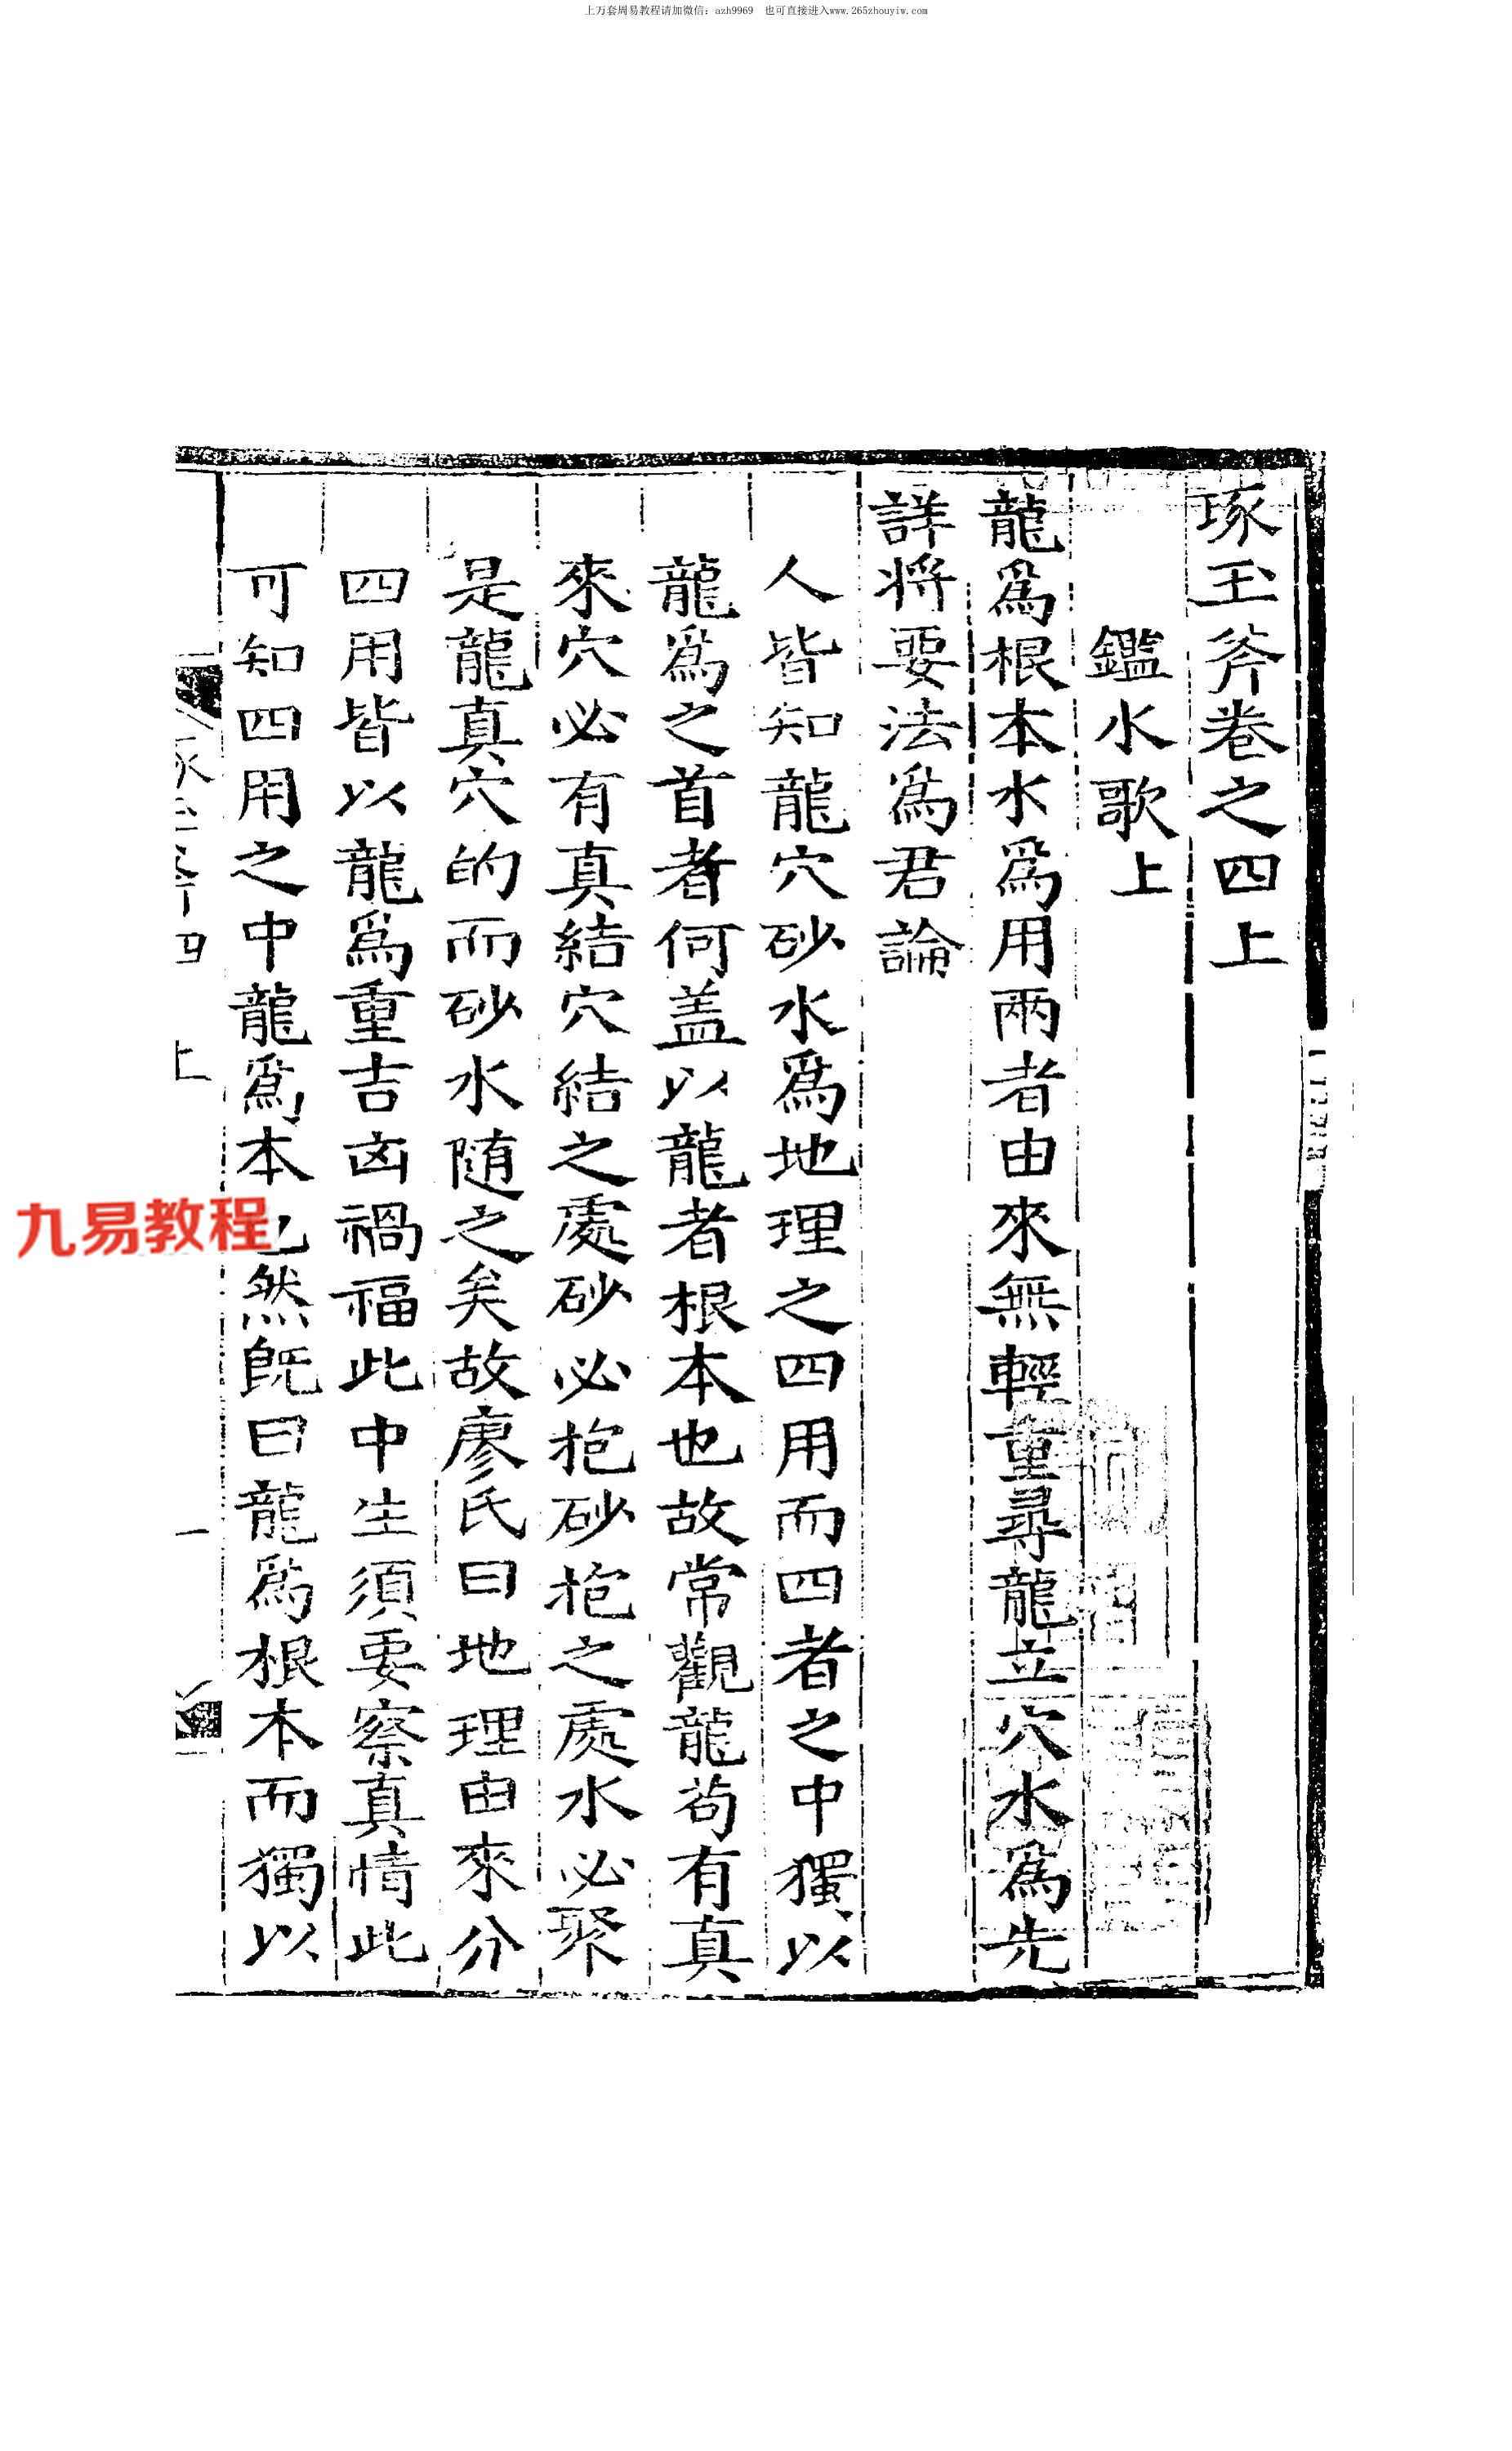 上万套周易教程请加微信：azh9969　也可直接进入www.265zhouyiw.com
琢玉斧卷之四上
鑑水歌上
龍爲根本水爲用兩者由來無輕重尋龍立穴水爲先
詳將要法爲君論
人皆知龍穴砂水爲地理之四用而四者之中獨以
龍爲之首者何盖以龍者根本也故常觀龍苟有真
來穴必有真結穴結之處砂必抱砂抱之處水必聚
是龍真穴的而砂水随之矣故廖氏曰地理由來分
四用皆以龍爲重吉凶禍福此中生須要察真情此
可知四用之中龍爲本也然既曰龍爲根本而獨以
四 上 一
九易教程